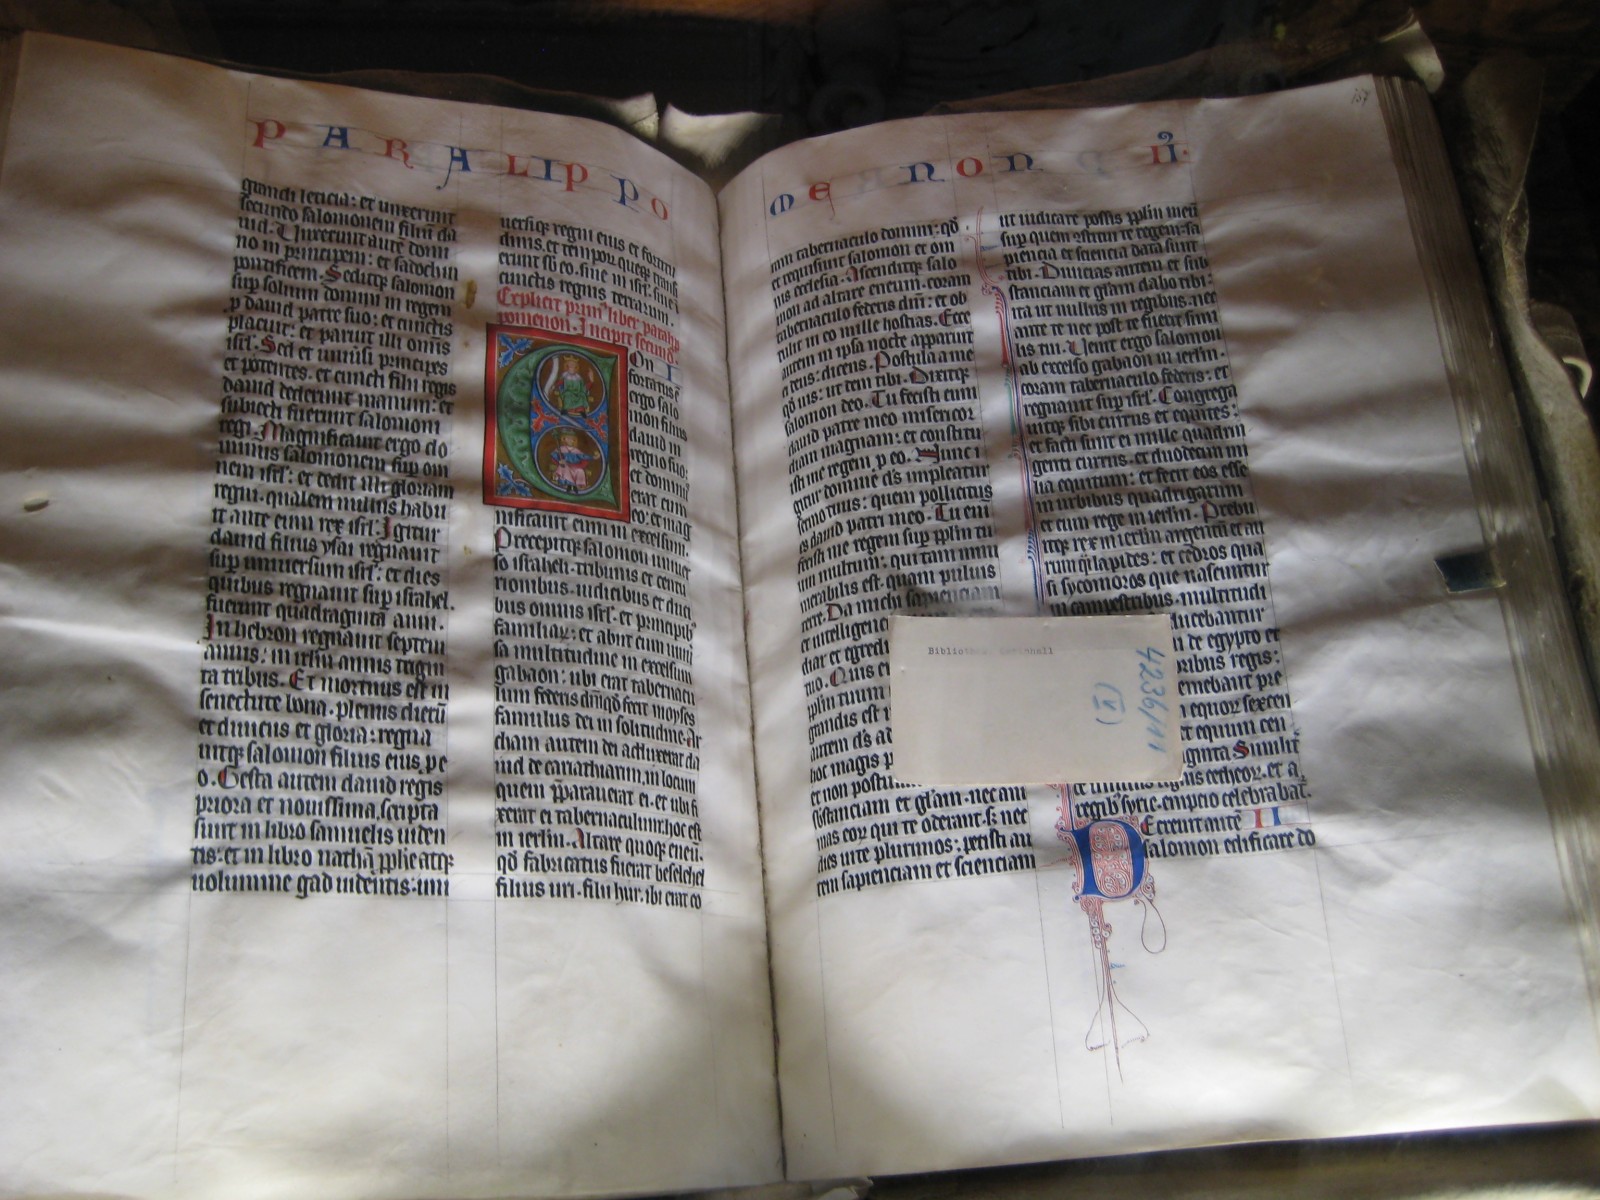 PARALIPPO
grandi leticia: et unxerunt
secundo salomonem filiũ da
uid. Unxerunt autē domi
no in principem: et sadoch in
pontificem. Seditqȝ salomon
sup solium domini in regem
p dauid patre suo: et cunctis
placuit: et paruit illi omīs
isrł. Sed et uniuersi principes
et potentes. et cuncti filii regis
dauid dederunt manum: et
subiecti fuerunt salomoni
regi. Magnificauit ergo do
minus salomonem sup om
nem isrł: et dedit illi gloriam
regni. qualem nullus habu
it ante eum rex isrł. Igitur
dauid filius ysai regnauit
sup uniuersum isrł: et dies
quibus regnauit sup israhel.
fuerunt quadraginta anni.
In hebron regnauit septem
annis: in ierłm annis trigin
ta tribus. Et mortuus est in
senectute bona. plenus dierũ
et diuiciis et gloria: regna
uitqȝ salomon filius eius p e
o. Gesta autem dauid regis
priora et nouissima. scripta
sunt in libro samuelis uiden
tis: et in libro nathã pphe atqȝ
uolumine gad uidentis: uni
uersiqȝ regni eius et fortitu
dinis. et tempor queqȝ transi
erunt sb eo. siue in isrł. siue i
cunctis regnis terrarum.
Explicit prim⁹ liber parali
pomenon. Incipit secund⁹.
On I
fortatus ē
ergo salo
mon filius
dauid in
regno suo:
et domin⁹
erat cum
eo: et mag
nificauit eum in excelsum.
Precepitqȝ salomon uniuer
so israheli. tribunis et centu
rionibus. iudicibus et duci
bus omnis isrł. et principib⁹
familiaꝝ: et abiit cum uniũ
sa multitudine in excelsum
gabaon: ubi erat tabernacu
lum federis dm̃ qd fecit moyses
famulus dei in solitudine. Ar
cham autem dei adduxerat da
uid de cariathiarim. in locum
quem pparauerat ei. et ubi fi
xerat ei tabernaculum: hoc est
in ierłm. Altare quoqȝ eneũ.
qd fabricatus fuerat beselehel
filius uri. filii hur. ibi erat co
MENON II.
157
ram tabernaculo domini: qd
et requisiuit salomon et om
nis ecclesia. Ascenditqȝ salo
mon ad altare eneum. coram
tabernaculo federis dñi: et ob
tulit in eo mille hostias. Ecce
autem in ipsa nocte apparuit
ei deus: dicens. Postula a me
qd uis: ut dem tibi. Dixitqȝ
salomon deo. Tu fecisti cum
dauid patre meo misericor
diam magnam: et constitu
isti me regem p eo. Nunc i
gitur domine ds impleatur
sermo tuus: quem pollicitus
es dauid patri meo. Tu eni
fecisti me regem sup pplm tu
um multum: qui tam innu
merabilis est. quam puluis
terre. Da michi sapienciam
et intelligenc
diar et egredi
tuo. Quis e
pplm tuum
grandis est
autem ds ad
hoc magis p
et non postu
substanciam et głam. nec am
mas eoꝝ qui te oderunt. s; nec
dies uite plurimos: petisti au
tem sapienciam et scienciam
ut iudicare possis pplm meũ
sup quem ɔstitui te regem: sa
piencia et sciencia data sunt
tibi. Diuicias autem et sub
stanciam et głam dabo tibi:
ita ut nullus in regibus. nec
ante te nec post te fuerit simi
lis tui. Uenit ergo salomon
ab excelso gabaon in ierłm.
coram tabernaculo federis: et
regnauit sup isrł. Congrega
uitqȝ sibi currus et equites:
et facti sunt ei mille quadrin
genti currus. et duodecim mi
lia equitum: et fecit eos esse
in urbibus quadrigarum
et cum rege in ierłm. Prebu
itqȝ rex in ierłm argentũ et au
rum qsi lapides: et cedros qua
si sycomoros que nascuntur
in campestribus. multitudi
ducebantur
de egypto et
oribus regis:
emebant pre
equor sexcen
et equum cen
ginta. Similit
regib⁹ syrie. empcio celebrabat.
Ecreuit autē II
salomon edificare do
4236/111
(V)